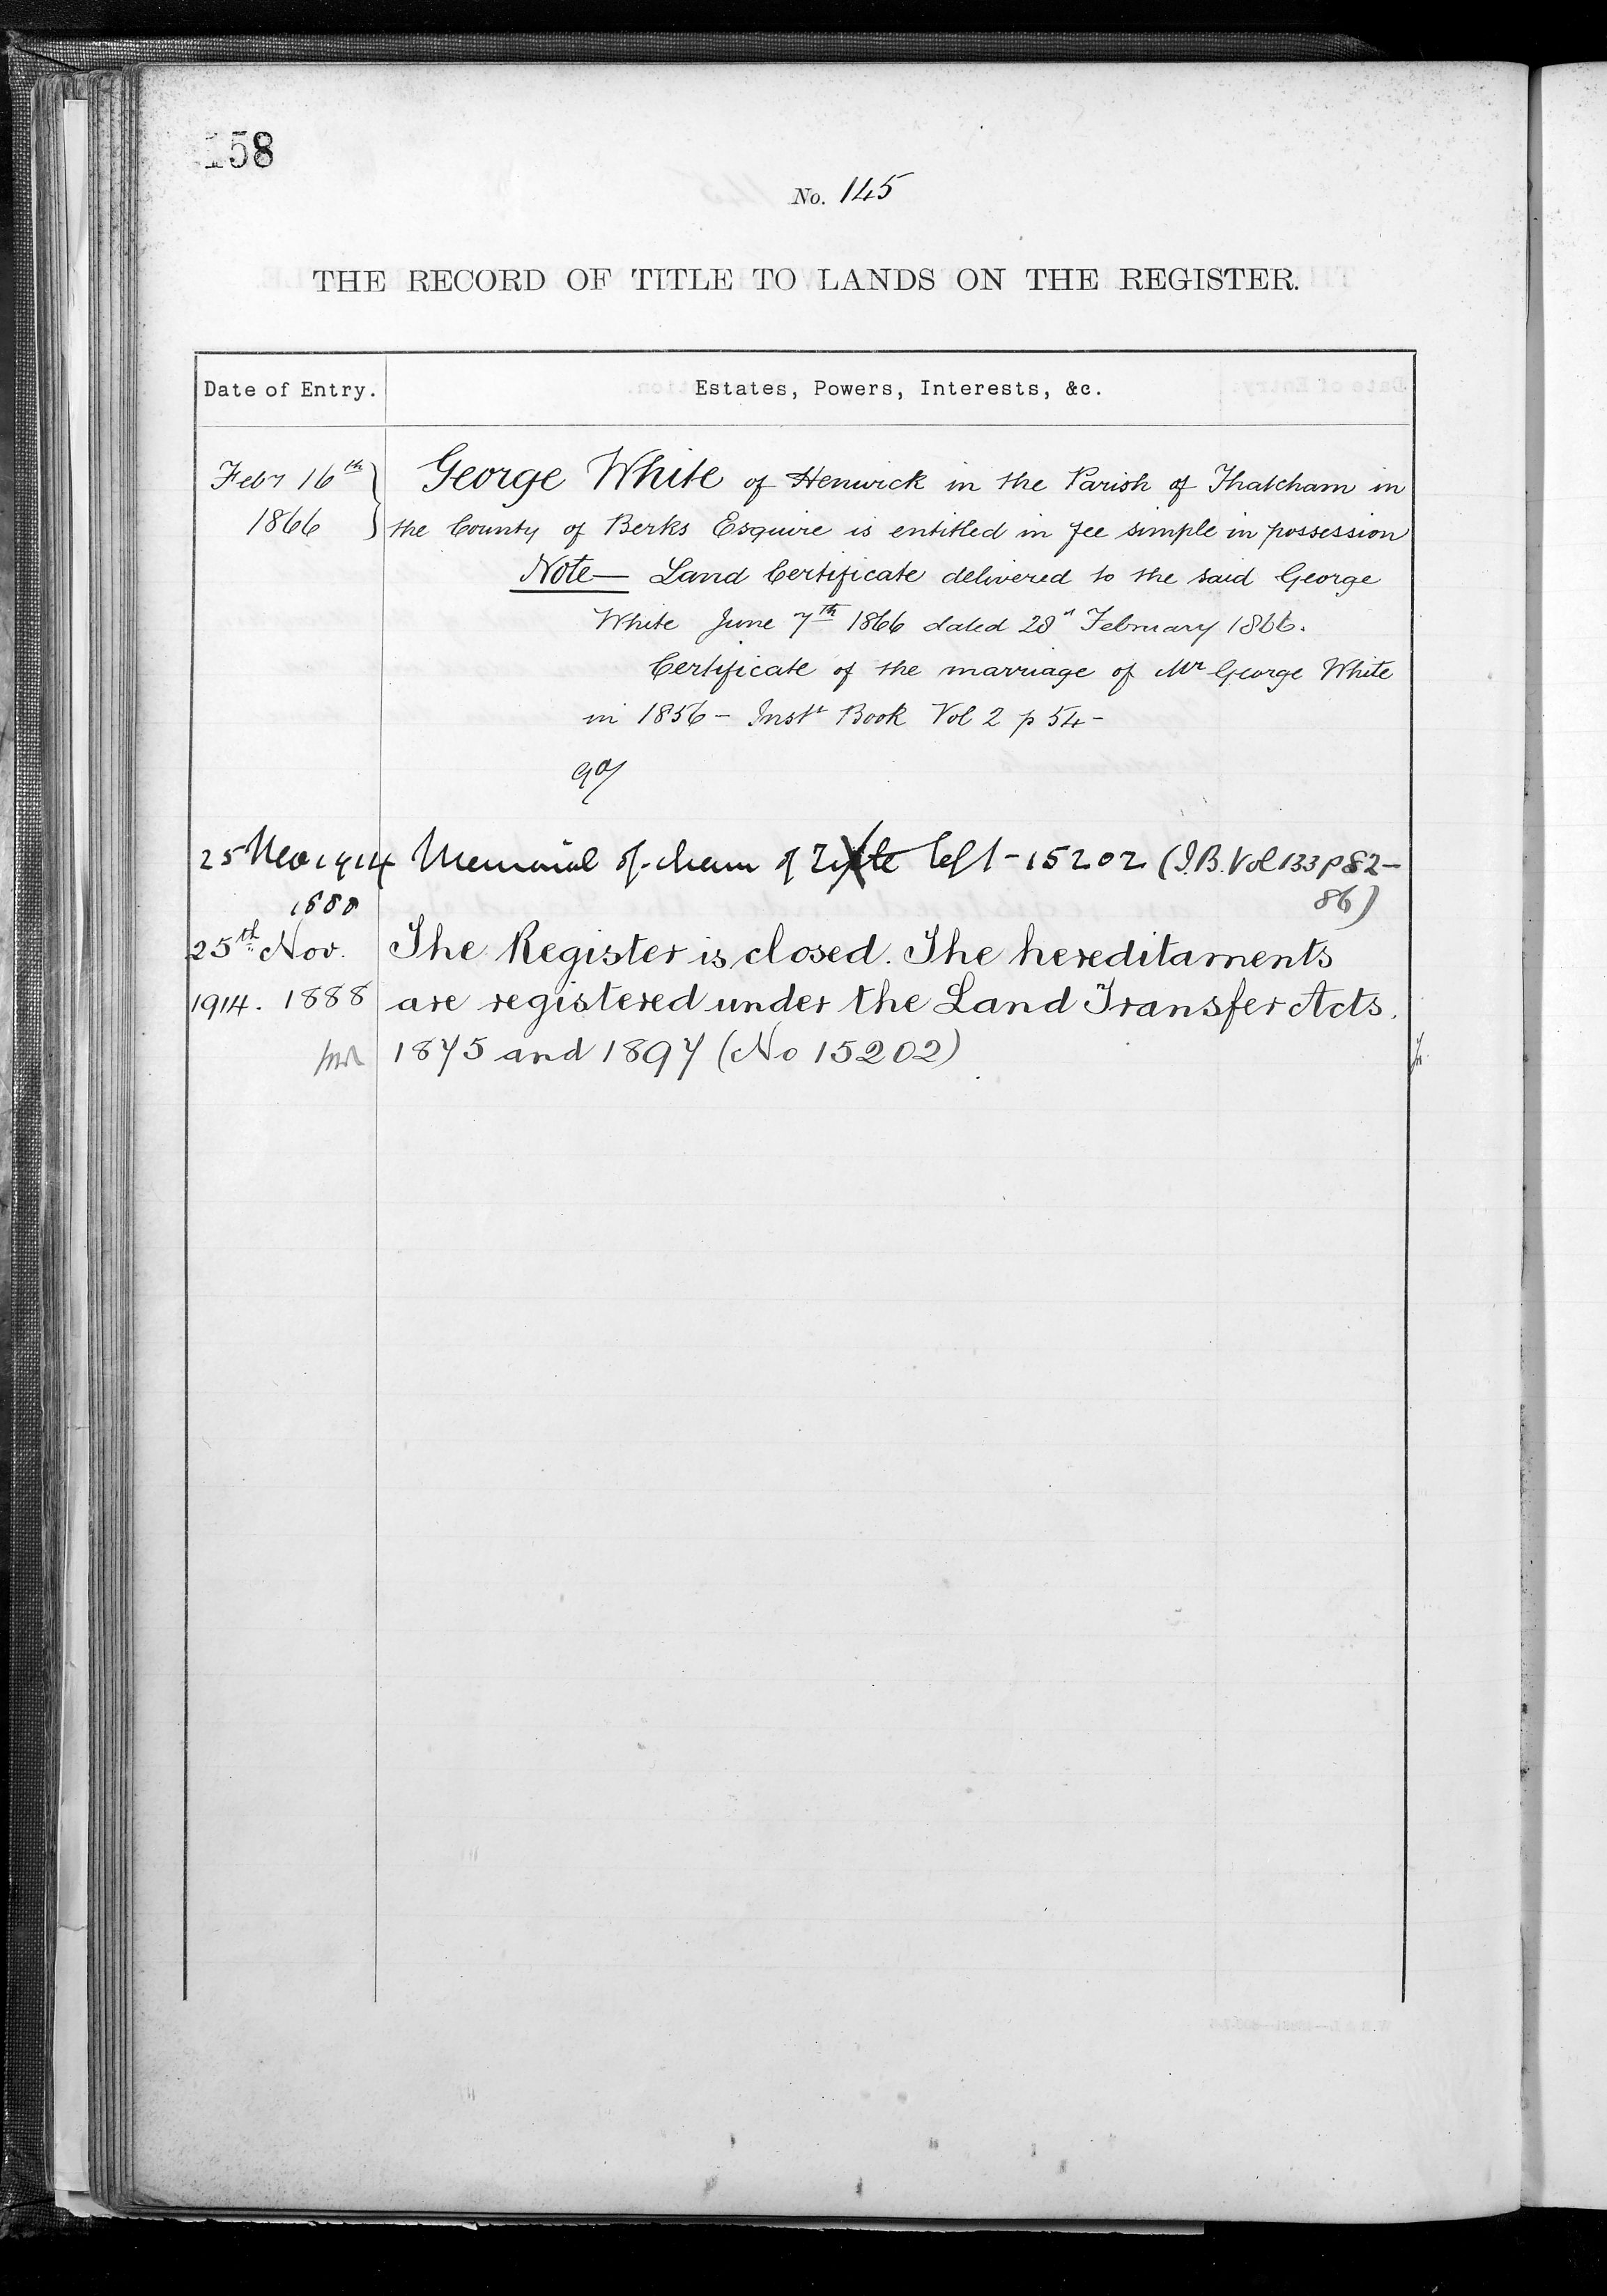 158
No. 145
THE RECORD OF TITLE TO LANDS ON THE REGISTER.
Date of Entry. Estates, Powers, Interests, &c.
Feby 16th George White of Henwick in the Parish of Thatcham in
1866 the County of Berks Esquire is entitled in fee simple in possession
Note— Land Certificate delivered to the said George
White June 7th 1866 dated 28th February 1866.
Certificate of the marriage of Mr George White
in 1856 - Instt Book Vol 2 p 54 -
25 Nov 1914 Memorial of chain of Title left - 15202 (I.B. Vol 133 p 82-
1888 86)
25th Nov. The Register is closed. The hereditaments
1914. 1888 are registered under the Land Transfer Acts.
1875 and 1897 (No 15202)